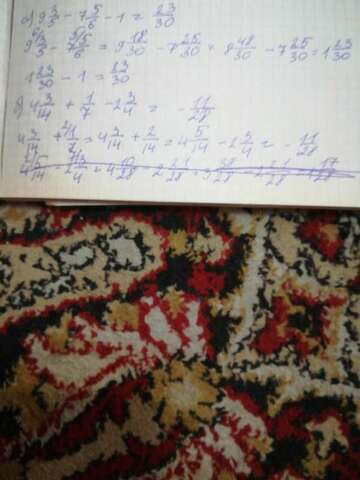 а) 9 3/5 - 7 5/6 - 1 = 23/30
9 3/5 - 7 5/6 = 9 18/30 - 7 25/30 = 8 48/30 - 7 25/30 = 1 23/30
1 23/30 - 1 = 23/30
4 3/14 + 1/7 - 2 3/4 = - 11/28
4 3/14 + 1/7 = 4 3/14 + 2/14 = 4 5/14 - 2 3/4 = - 11/28
4 5/14 - 2 3/4 = 4 10/28 - 2 21/28 = 3 38/28 - 2 21/28 = 1 17/28